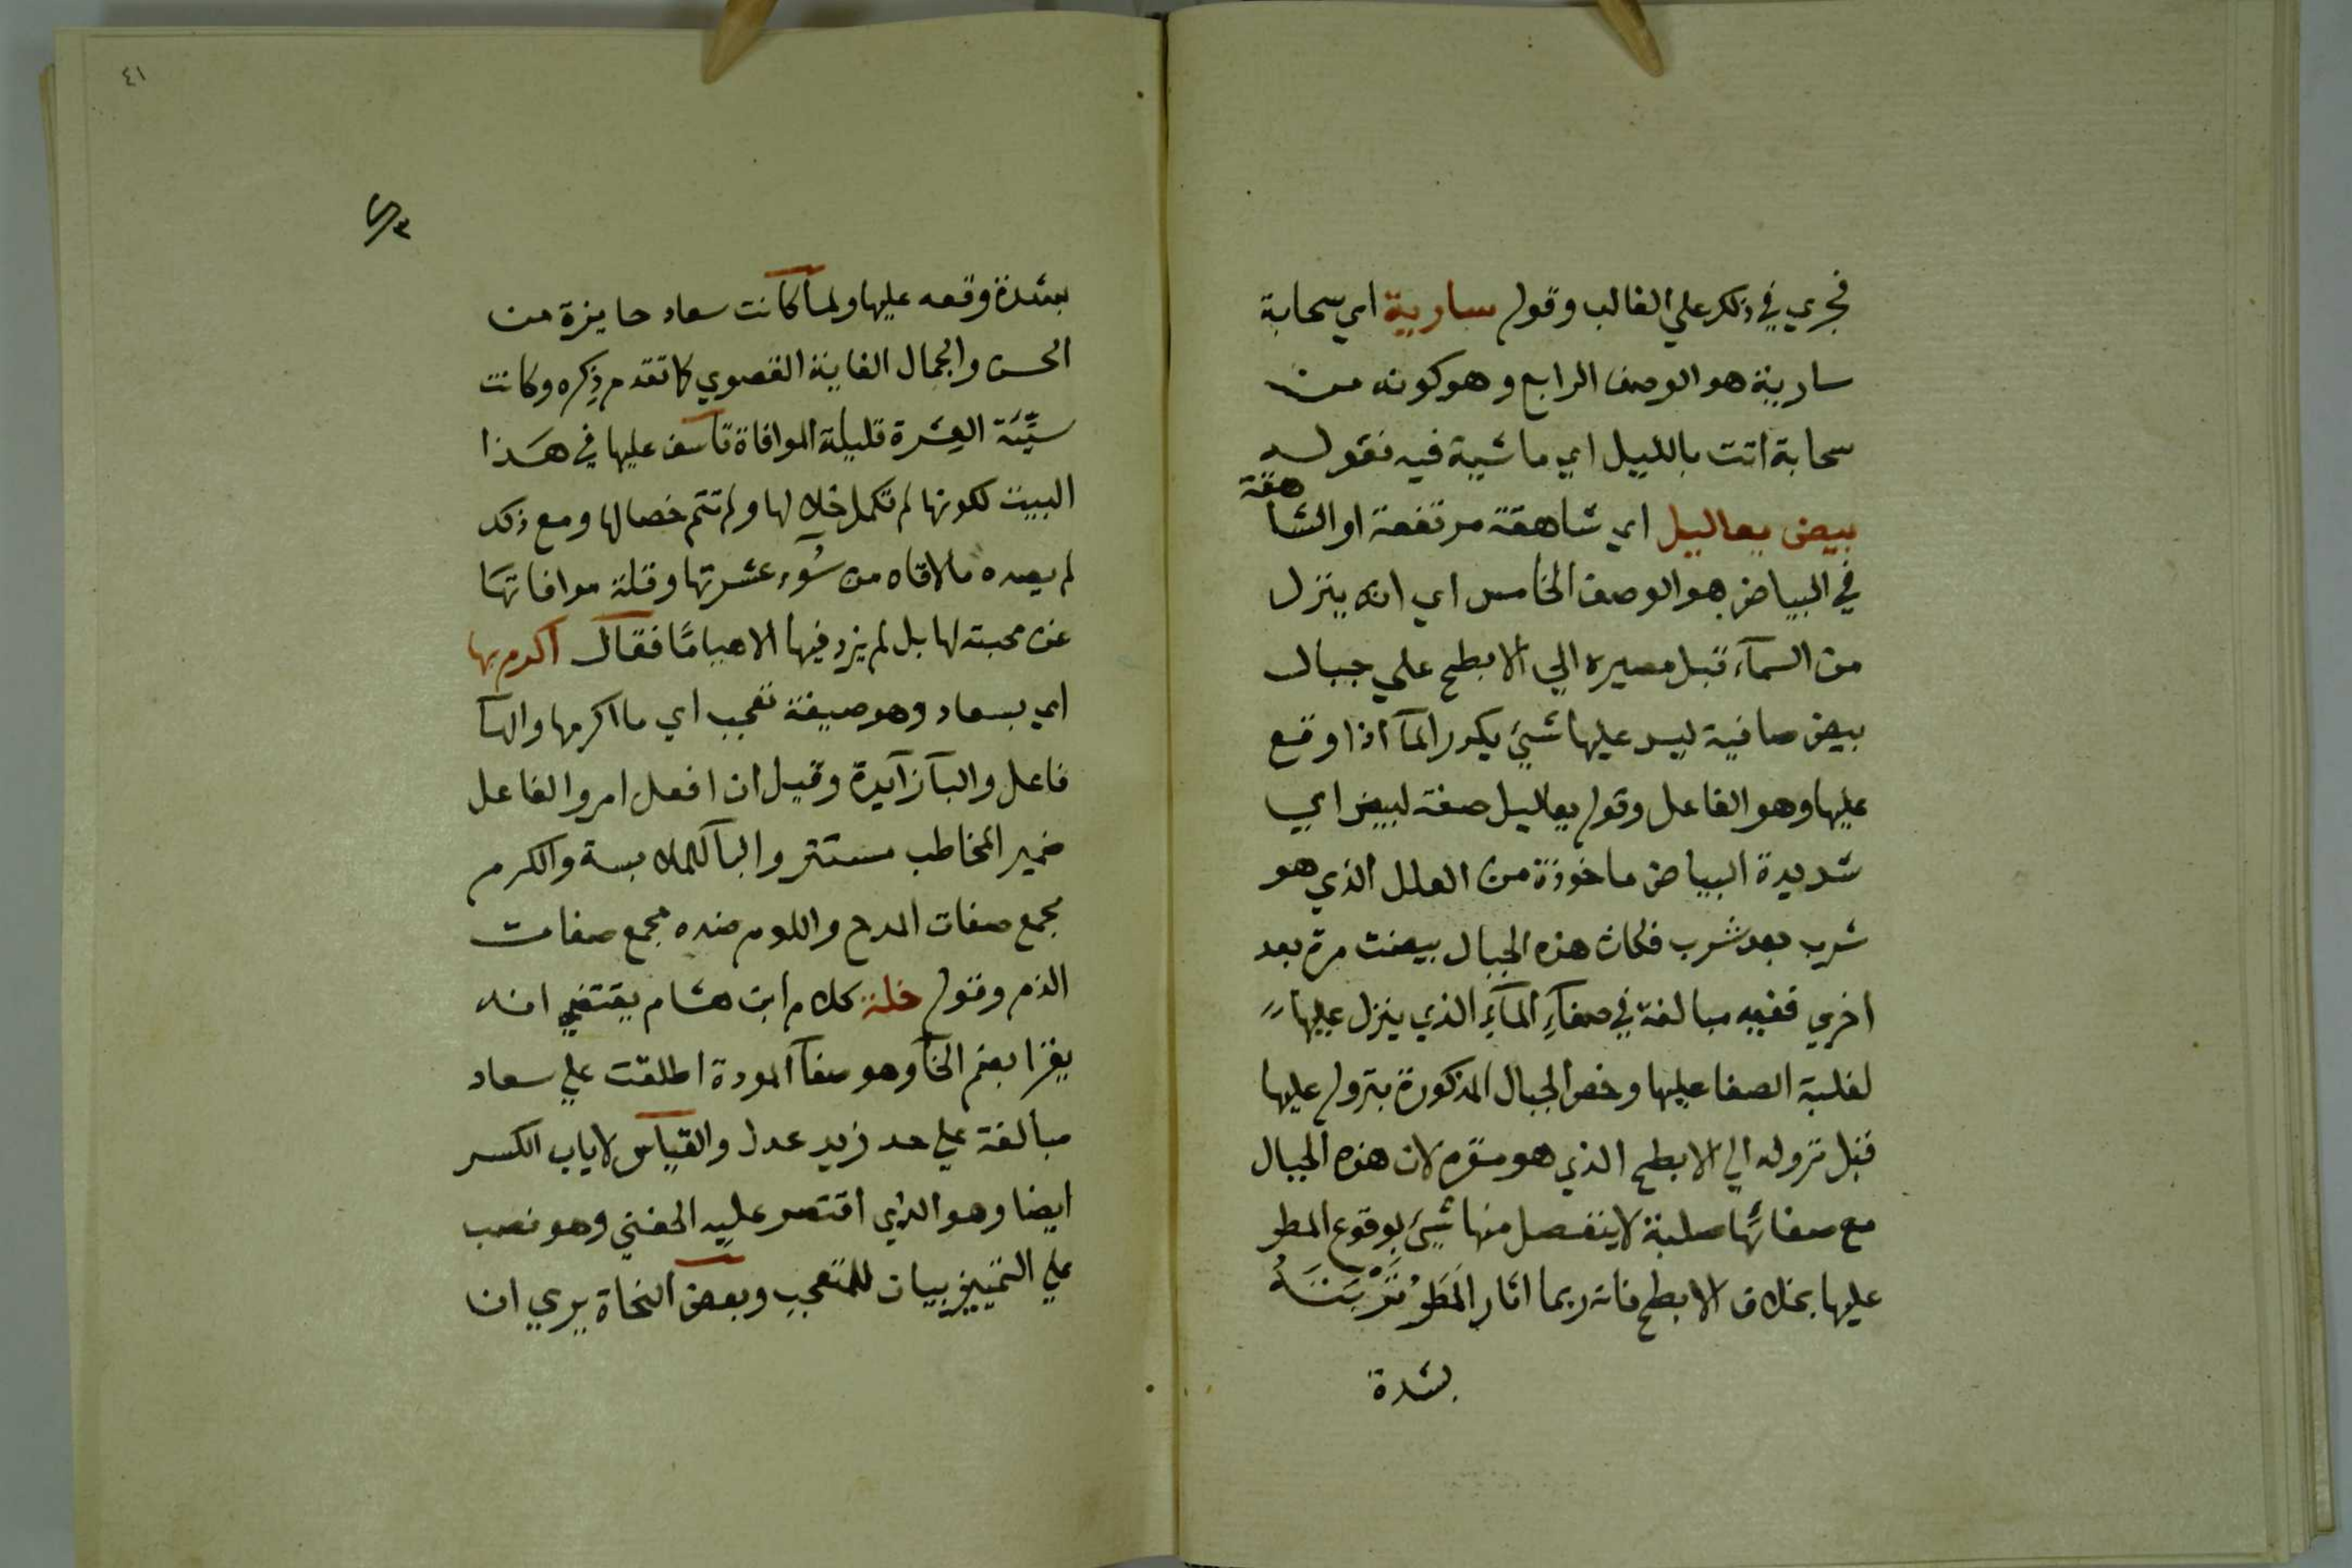 فجري في ذلك علي الغالب وقوله سارية اي سحابة
سارية هو الوصف الرابع وهو كونه من
سحابة اتت بالليل اي ماشية فيه فقوله
بيض يعاليل اي شاهقة مرتفعة او الشاهقة
في البياض هو الوصف الخامس اي انه ينزل
من السمآء قبل مصيره الي الابطح علي جبال
بيض صافية ليس عليها شيئ يكدر المآ اذا وقع
عليها وهو الفاعل وقوله يعاليل صفة لبيض اي
شديدة البياض ماخوذة من العلل الذي هو
شرب بعد شرب فكان هذه الجبال بيضت مرة بعد
اخري ففيه مبالغة في صفآء المآء الذي ينزل عليها
لغلبة الصفا عليها وخص الجبال المذكورة بنزوله عليها
قبل نزوله الي الابطح الذي هو مقره لان هذه الجبال
مع صفائها صلبة لا ينفصل منها شيئ بوقوع المطر
عليها بخلاف الابطح فانه ربما اثار المَطَرُ تُرْبَتَهُ
بشدة
٤١
بشدة وقعه عليها ولما كانت سعاد حايزة من
الحسن والجمال الغاية القصوي كما تقدم ذكره وكانت
سيِّئَة العِشرة قليلة الموافاة تأسف عليها في هذا
البيت لكونها لم تكمل خلالها ولم تتم خصالها ومع ذلك
لم يصده ما لاقاه من سُوء عشرتها وقلة موافاتها
عن محبته لها بل لم يزد فيها الا هيامًا فقال اكرم بها
اي بسعاد وهو صيغة تعجب اي ما اكرمها والهآ
فاعل والبآ زآيدة وقيل ان افعل امر والفاعل
ضمير المخاطب مستتر والبآ للملابسة والكرم
مجمع صفات المدح واللوم ضده مجمع صفات
الذم وقوله خلة كلام ابن هشام يقتضي انه
يقرا بضم الخآ وهو صفآ المودة اطلقت علي سعاد
مبالغة علي حد زيد عدل والقياس لا ياب الكسر
ايضا وهو الذي اقتصر عليه الحفني وهو نصب
علي التمييز بيان للمتعجب وبعض النحاة يري ان